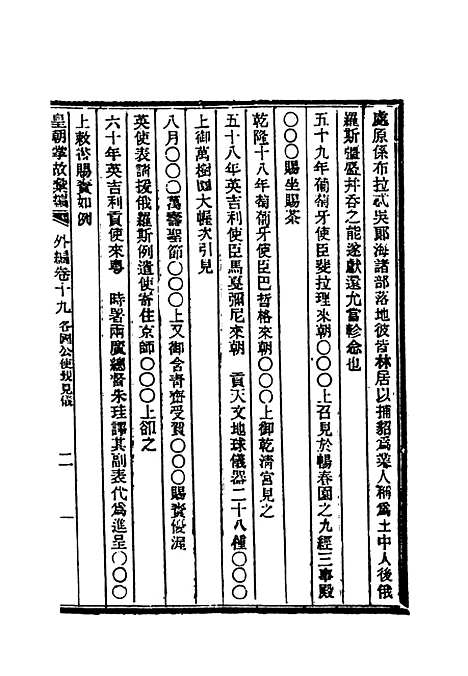 處原係布拉忒吳郞海諸部落地彼皆林居以捕貂爲業人稱爲土中人後俄
羅斯彊盛幷吞之能遂獻還尤當軫念也
五十九年葡萄牙使臣斐拉理來朝〇〇〇上召見於暢春園之九經三事殿
〇〇〇賜坐賜茶
乾隆十八年葡萄牙使臣巴哲格來朝〇〇〇上御乾清宮見之
五十八年英吉利使臣馬戛彌尼來朝 貢天文地球儀器二十八種〇〇〇
上御萬樹園大幄次引見
八月〇〇〇萬壽聖節〇〇〇上又御含靑齋受賀〇〇〇賜賚優渥
英使表請援俄羅斯例遣使寄住京師〇〇〇上卻之
六十年英吉利貢使來粵 時署兩廣總督朱珪譯其副表代爲進呈〇〇〇
上敕書賜賚如例
皇朝掌故彙編 外編卷十九 各國公使覲見儀 二